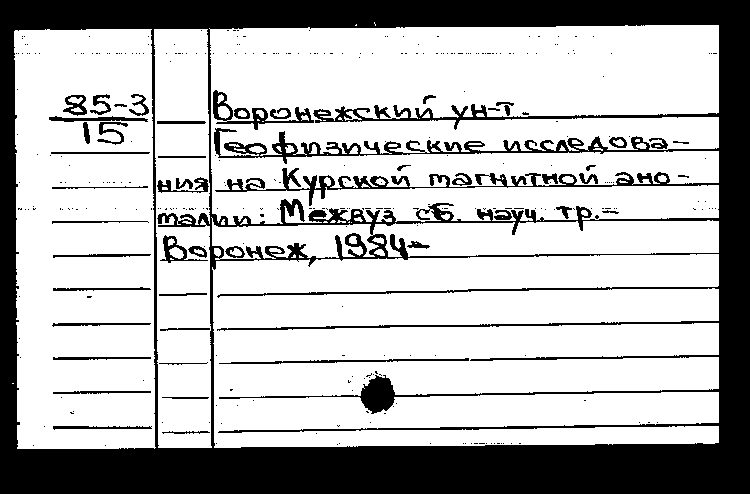 85-3
15
Воронежский ун-т.
Геофизические исследова-
ния на Курской магнитной ано-
малии: Межвуз сб. науч. тр.-
Воронеж, 1984-